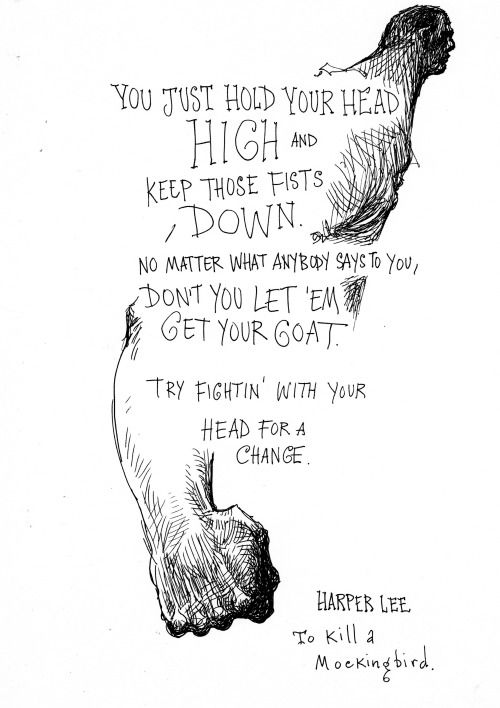 YOU JUST HOLD YOUR HEAD
HIGH AND
KEEP THOSE FISTS
DOWN.
NO MATTER WHAT ANYBODY SAYS TO YOU,
DON'T YOU LET 'EM
GET YOUR GOAT.
TRY FIGHTIN' WITH YOUR
HEAD FOR A
CHANGE.
HARPER LEE
To Kill a
Mockingbird.